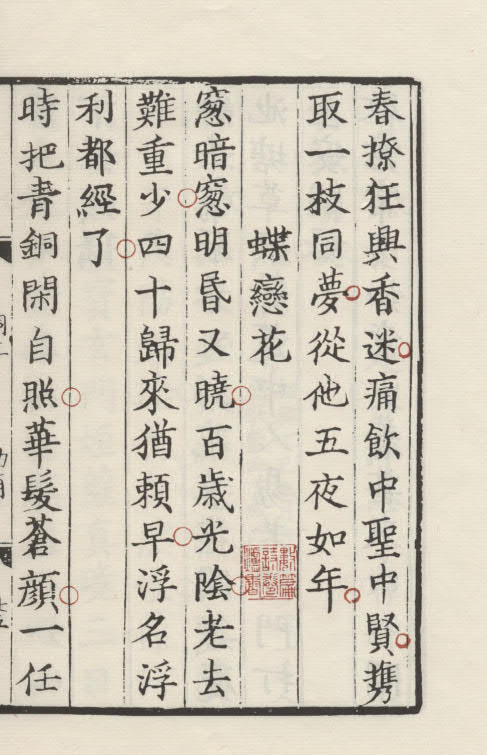 春撩狂興香迷痛飲中聖中賢攜
取一枝同夢從他五夜如年
蝶戀花
窓暗窓明昏又曉百歲光陰老去
難重少四十歸來猶賴早浮名浮
利都經了
時把青銅閑自照華髮蒼顔一任